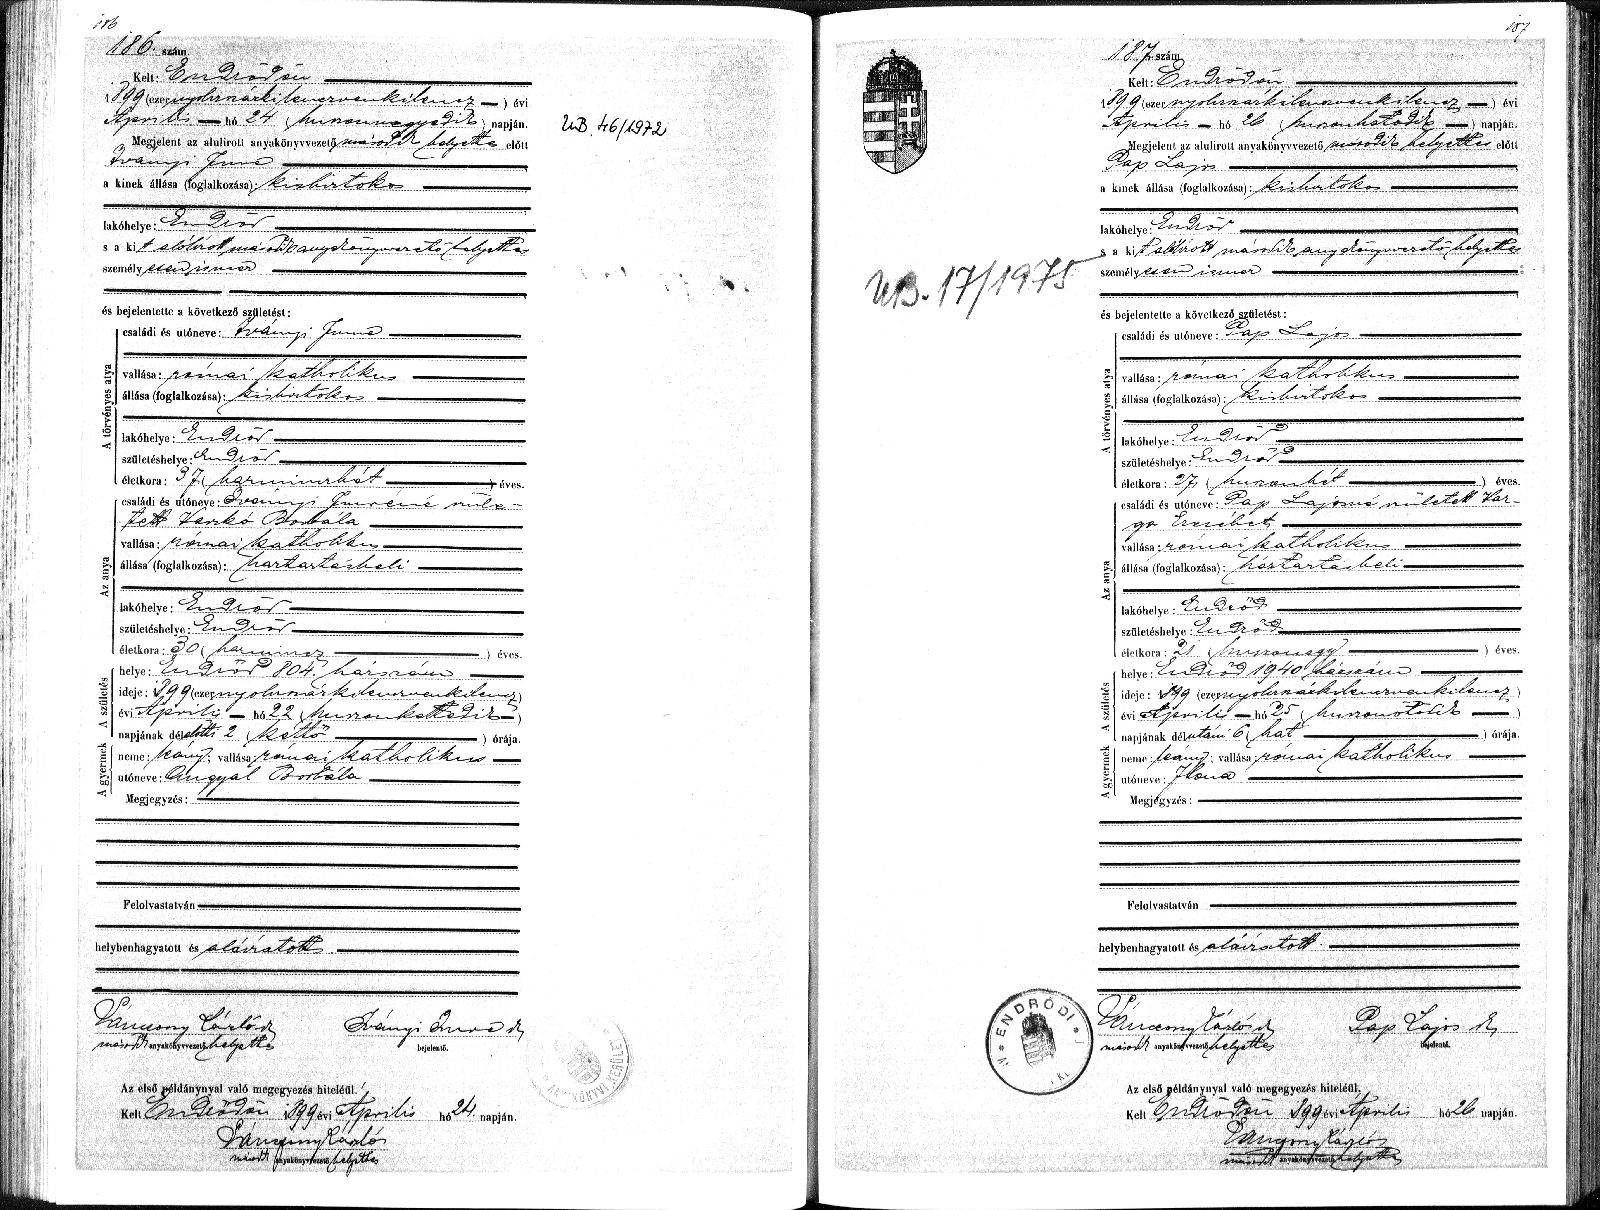 186
186. szám.
Kelt: Endrődön
1899 (ezernyolcszázkilencvenkilencz) évi
Április hó 24 (huszonnegyedik) napján.
Megjelent az alulirott anyakönyvvezető második helyettes előtt
Iványi Imre
a kinek állása (foglalkozása): kisbirtokos
lakóhelye: Endrőd
s a kit alólírott második anyakönyvvezető helyettes
személyesen ismer
és bejelentette a következő születést:
A törvényes atya
családi és utóneve: Iványi Imre
vallása: római katholikus
állása (foglalkozása): kisbirtokos
lakóhelye: Endrőd
születéshelye: Endrőd
életkora: 37 (harminczhét) éves.
Az anya
családi és utóneve: Iványi Imréné szüle-
tett Varkó Borbála
vallása: római katholikus
állása (foglalkozása): háztartásbeli
lakóhelye: Endrőd
születéshelye: Endrőd
életkora: 30 (harmincz) éves.
A születés
helye: Endrőd 804. házszám
ideje: 1899 (ezernyolczszázkilenczvenkilencz)
évi Április hó 22 (huszonkettedik)
napjának délelőtti 2 (kettő) órája.
A gyermek
neme: leány; vallása: római katholikus
utóneve: Angyal Borbála
Megjegyzés:
Felolvastatván
helybenhagyatott és aláíratott.
második anyakönyvvezető helyettes
Iványi Imre
bejelentő.
Az első példánynyal való megegyezés hiteléül.
Kelt Endrődön 1899 évi Április hó 24. napján.
második anyakönyvvezető helyettes
UB. 46/1972
187
187. szám.
Kelt: Endrődön
1899 (ezernyolczszázkilenczvenkilencz) évi
Április hó 26 (huszonhatodik) napján.
Megjelent az alulirott anyakönyvvezető második helyettes előtt
Pap Lajos
a kinek állása (foglalkozása): kisbirtokos
lakóhelye: Endrőd
s a kit alólírott második anyakönyvvezető helyettes
személyesen ismer
UB. 17/1975
és bejelentette a következő születést:
A törvényes atya
családi és utóneve: Pap Lajos
vallása: római katholikus
állása (foglalkozása): kisbirtokos
lakóhelye: Endrőd
születéshelye: Endrőd
életkora: 27 (huszonhét) éves.
Az anya
családi és utóneve: Pap Lajosné született Var-
ga Erzsébet
vallása: római katholikus
állása (foglalkozása): háztartásbeli
lakóhelye: Endrőd
születéshelye: Endrőd
életkora: 21 (huszonegy) éves.
A születés
helye: Endrőd 1940 házszám
ideje: 1899 (ezernyolczszázkilenczvenkilencz)
évi Április hó 25 (huszonötödik)
napjának délutáni 6 (hat) órája.
A gyermek
neme: leány; vallása: római katholikus
utóneve: Ilona
Megjegyzés:
Felolvastatván
helybenhagyatott és aláíratott.
második anyakönyvvezető helyettes
Pap Lajos
bejelentő.
ENDRŐDI
Az első példánynyal való megegyezés hiteléül.
Kelt Endrődön 1899 évi Április hó 26 napján.
második anyakönyvvezető helyettes